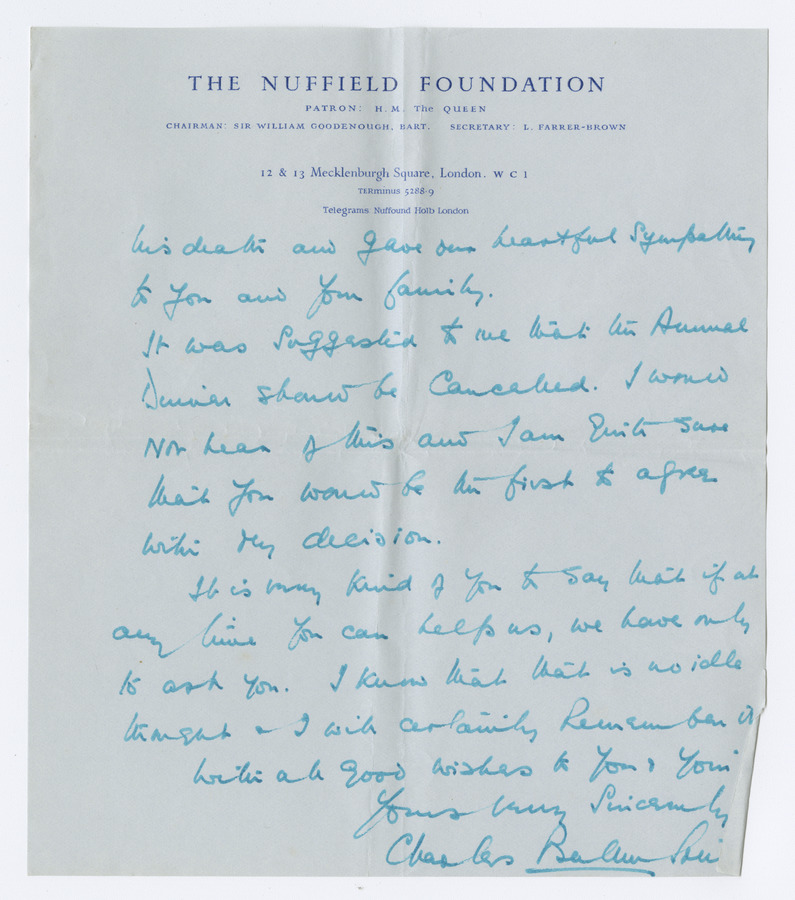 THE NUFFIELD FOUNDATION
PATRON: H. M. The QUEEN
CHAIRMAN: SIR WILLIAM GOODENOUGH, BART. SECRETARY: L. FARRER-BROWN
12 & 13 Mecklenburgh Square, London. W C 1
TERminus 5288-9
Telegrams Nuffound Holb London
his death and gave our heartful Sympathy
to you and your family.
It was Suggested to me that the Annual
Dinner should be Cancelled. I would
Not hear of this and I am Quite sure
that you would be the first to agree
with my decision.
It is very Kind of you to say that if at
any time you can help us, we have only
to ask you. I know that that is no idle
thought & I will certainly Remember it
With all good wishes to you & your
Yours very Sincerely
Charles